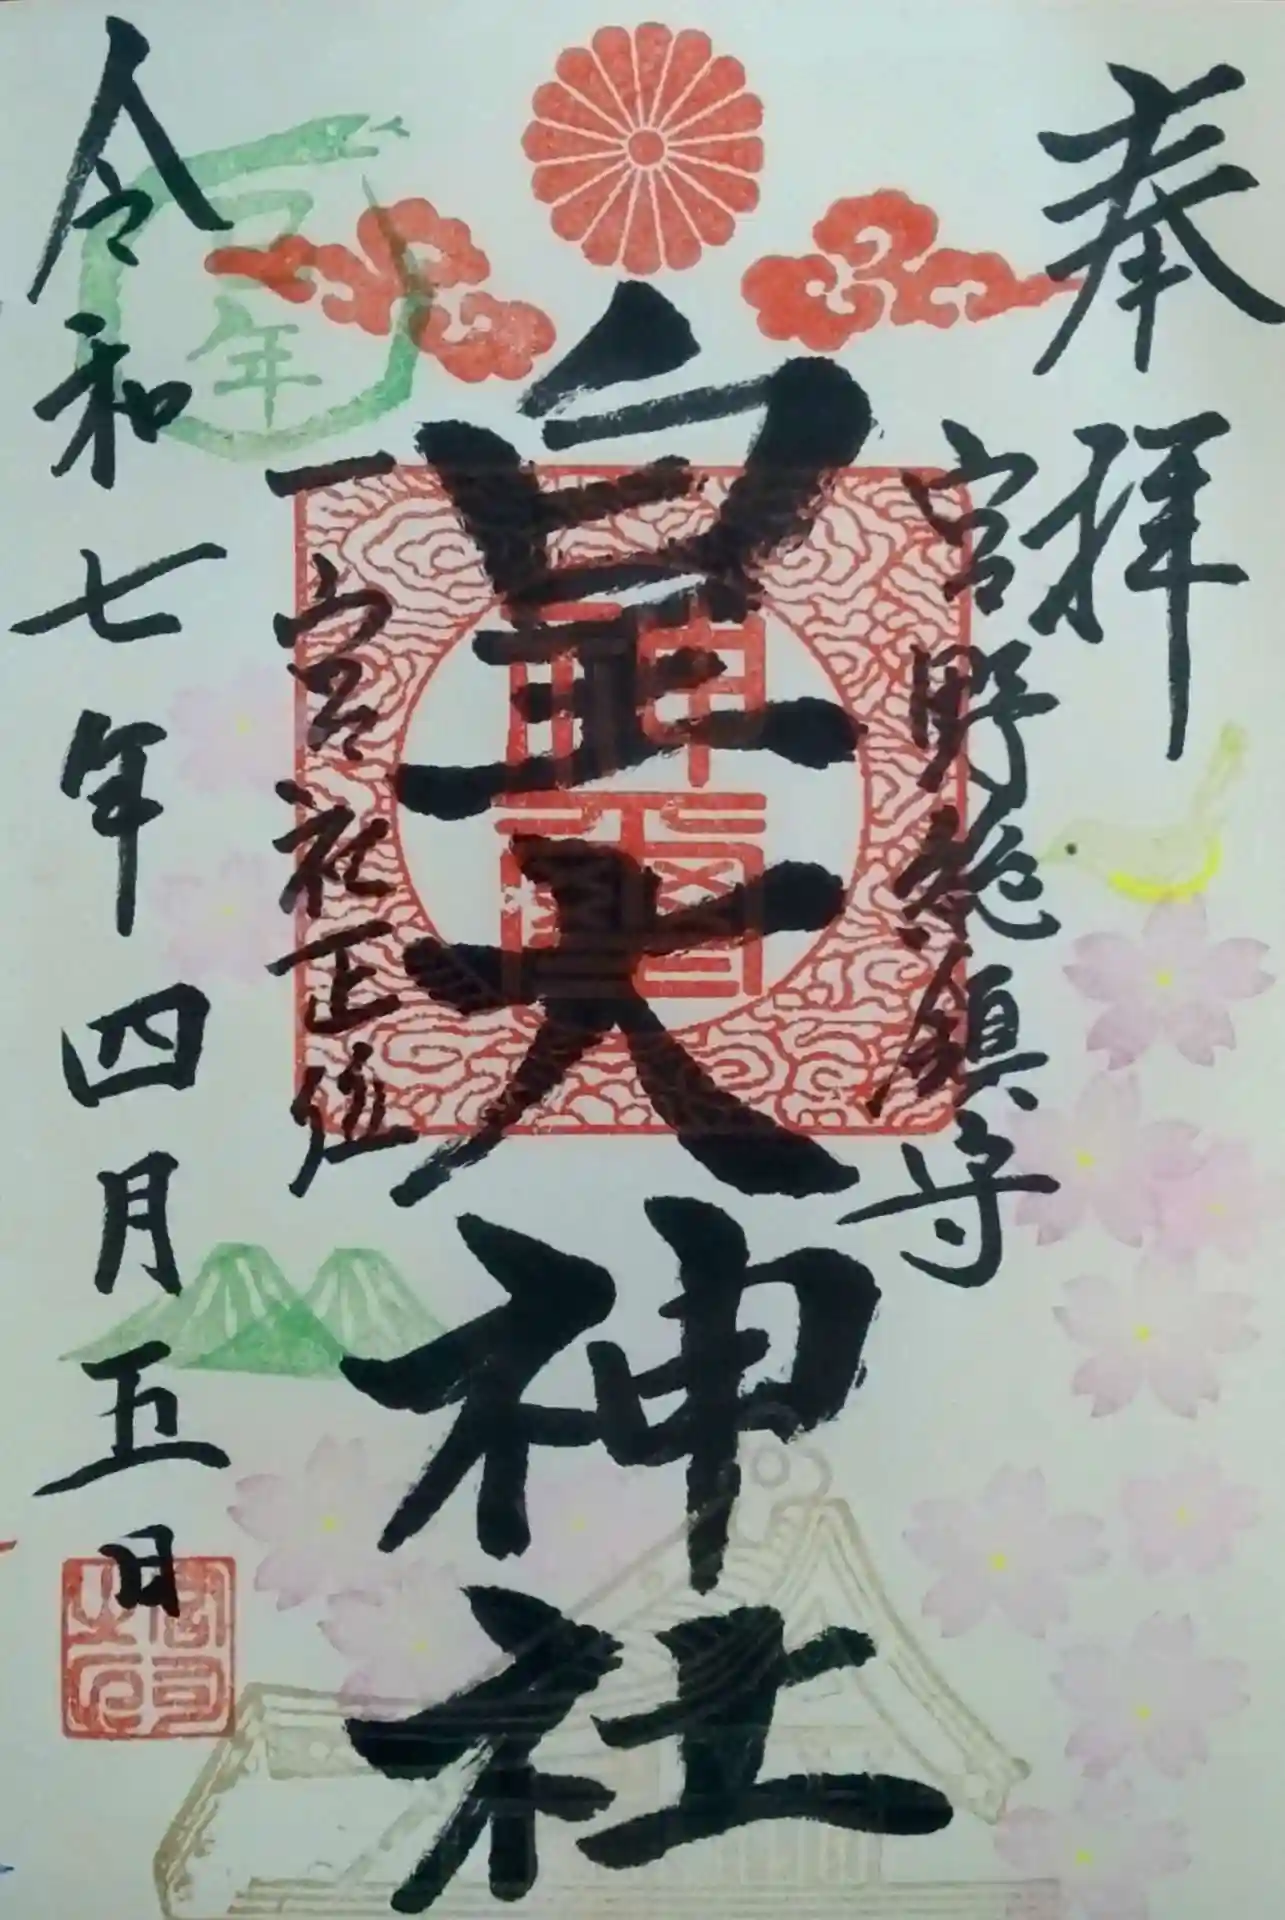 奉拝
宮野総鎮守
皇大神社
一宮社正位
令和七年四月五日
巳年
宮司之印